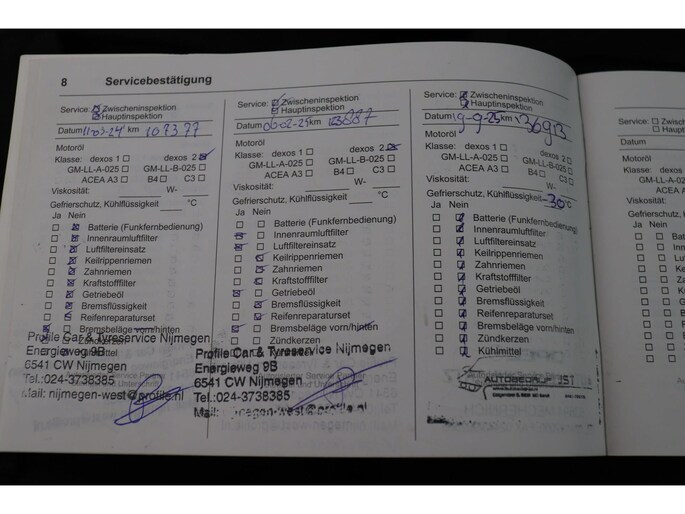 8 Servicebestätigung
Service: Zwischeninspektion
Hauptinspektion
Datum 11-03-24 km 107377
Motoröl
Klasse: dexos 1 dexos 2
GM-LL-A-025 GM-LL-B-025
ACEA A3 B4 C3
Viskosität: W-
Gefrierschutz, Kühlflüssigkeit °C
Ja Nein
Batterie (Funkfernbedienung)
Innenraumluftfilter
Luftfiltereinsatz
Keilrippenriemen
Zahnriemen
Kraftstofffilter
Getriebeöl
Bremsflüssigkeit
Reifenreparaturset
Bremsbeläge vorn/hinten
Zündkerzen
Profile Car & Tyreservice Nijmegen
Energieweg 9B
6541 CW Nijmegen
Tel.:024-3738385
Mail: nijmegen-west@profile.nl
Service: Zwischeninspektion
Hauptinspektion
Datum 06-02-25 km
Motoröl
Klasse: dexos 1 dexos 2
GM-LL-A-025 GM-LL-B-025
ACEA A3 B4 C3
Viskosität: W-
Gefrierschutz, Kühlflüssigkeit °C
Ja Nein
Batterie (Funkfernbedienung)
Innenraumluftfilter
Luftfiltereinsatz
Keilrippenriemen
Zahnriemen
Kraftstofffilter
Getriebeöl
Bremsflüssigkeit
Reifenreparaturset
Bremsbeläge vorn/hinten
Zündkerzen
Profile Car & Tyreservice Nijmegen
Energieweg 9B
6541 CW Nijmegen
Tel.:024-3738385
Mail: nijmegen-west@profile.nl
Service: Zwischeninspektion
Hauptinspektion
Datum 9-9-25 km 136913
Motoröl
Klasse: dexos 1 dexos 2
GM-LL-A-025 GM-LL-B-025
ACEA A3 B4 C3
Viskosität: W-
Gefrierschutz, Kühlflüssigkeit -30 °C
Ja Nein
Batterie (Funkfernbedienung)
Innenraumluftfilter
Luftfiltereinsatz
Keilrippenriemen
Zahnriemen
Kraftstofffilter
Getriebeöl
Bremsflüssigkeit
Reifenreparaturset
Bremsbeläge vorn/hinten
Zündkerzen
Kühlmittel
AUTOBEDRIJF JST
Service:
Datum
Motoröl
Klasse:
GM-LL-A-025
ACEA A3
Viskosität:
Gefrierschutz,
Ja Nein